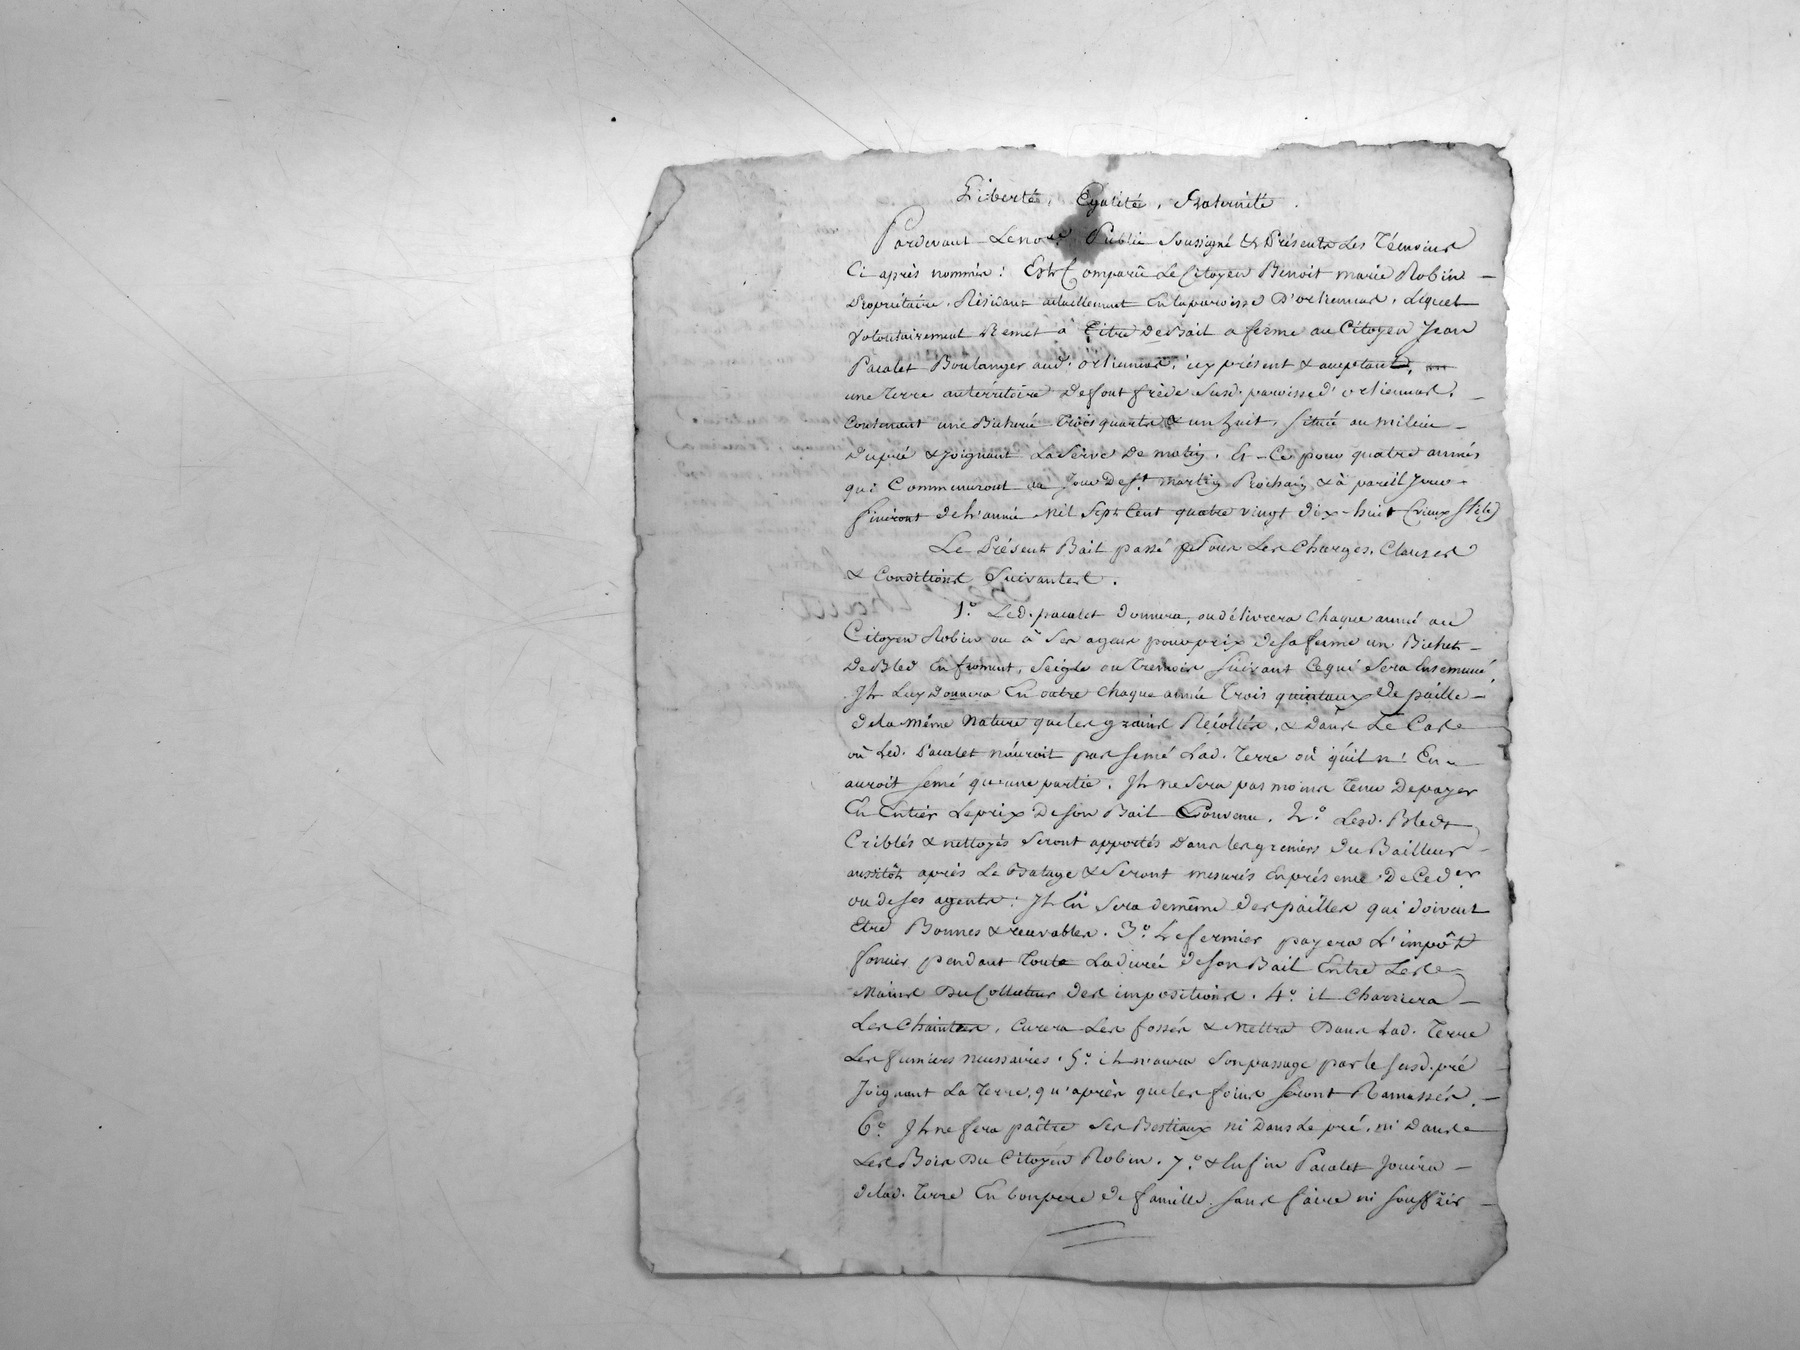 Liberté, Egalité, Fraternité.
Pardevant Le no.re Public Soussigné & Présents Les Témoins
Ci après nommés : Est Comparû Le Citoyen Benoit marie Robin
Propriétaire, Résidant actuellement En la paroisse D'orliennas, Lequel
Volontairement Remet à Titre De Bail a ferme au Citoyen Jean
Pacalet Boulanger aud. orliennas, icy présent & acceptant,
une Terre au térritoire De font frède Susd. paroisse d'orliennas,
Contenant une Bicherée Trois quarts & un huit, Située au milieu
du pré & Joignant La Serve De matin. Et Ce pour quatre années
qui Commenceront au Jour De St. martin Prochain & à pareil Jour
finiront de L'année Mil Sept Cent quatre vingt dix-huit (vieux Stile)
Le Présent Bail passé Sous Les Charges, Clauses
& Conditions Suivantes.
1.° Led. pacalet donnera, ou délivrera Chaque année au
Citoyen Robin ou à Ses agens pour prix de sa ferme un Bichet
De Bled En froment, Seigle ou Tremois Suivant Ce qui Sera Ensemencé,
Il Luy Donnera En outre Chaque année Trois quintaux de paille
de la même Nature que les grains Récoltés, & Dans Le Cas
où Led. Pacalet n'auroit pas Semé Lad. Terre où qu'il n'En
auroit Semé qu'une partie, Il ne Sera pas moins Tenu De payer
En Entier Le prix De son Bail Convenu. 2.° Lesd. Bleds
Criblés & nettoyés Seront apportés Dans les greniers du Bailleur
aussitôt après Le Batage & Seront mesurés En présence De Ced.er
ou de ses agents : Il En Sera de même des pailles qui doivent
Etre Bonnes & recevables. 3.° Le fermier payera L'impôt
foncier pendant Toute La durée de son Bail Entre Les
Mains Du Collecteur des impositions. 4.° il Charriera
Les Chaintres, Curera Les fossés & Mettra Dans Lad. Terre
Les fumiers necessaires. 5.° il n'aura Son passage par le Susd. pré
Joignant La Terre, qu'après que les foins Seront Ramassés.
6.° Il ne fera paître Ses Bestiaux ni Dans Le pré, ni Dans
Les Bois Du Citoyen Robin. 7.° & Enfin Pacalet Jouira
de lad. Terre En bon pere de famille, Sans faire ni Souffrir